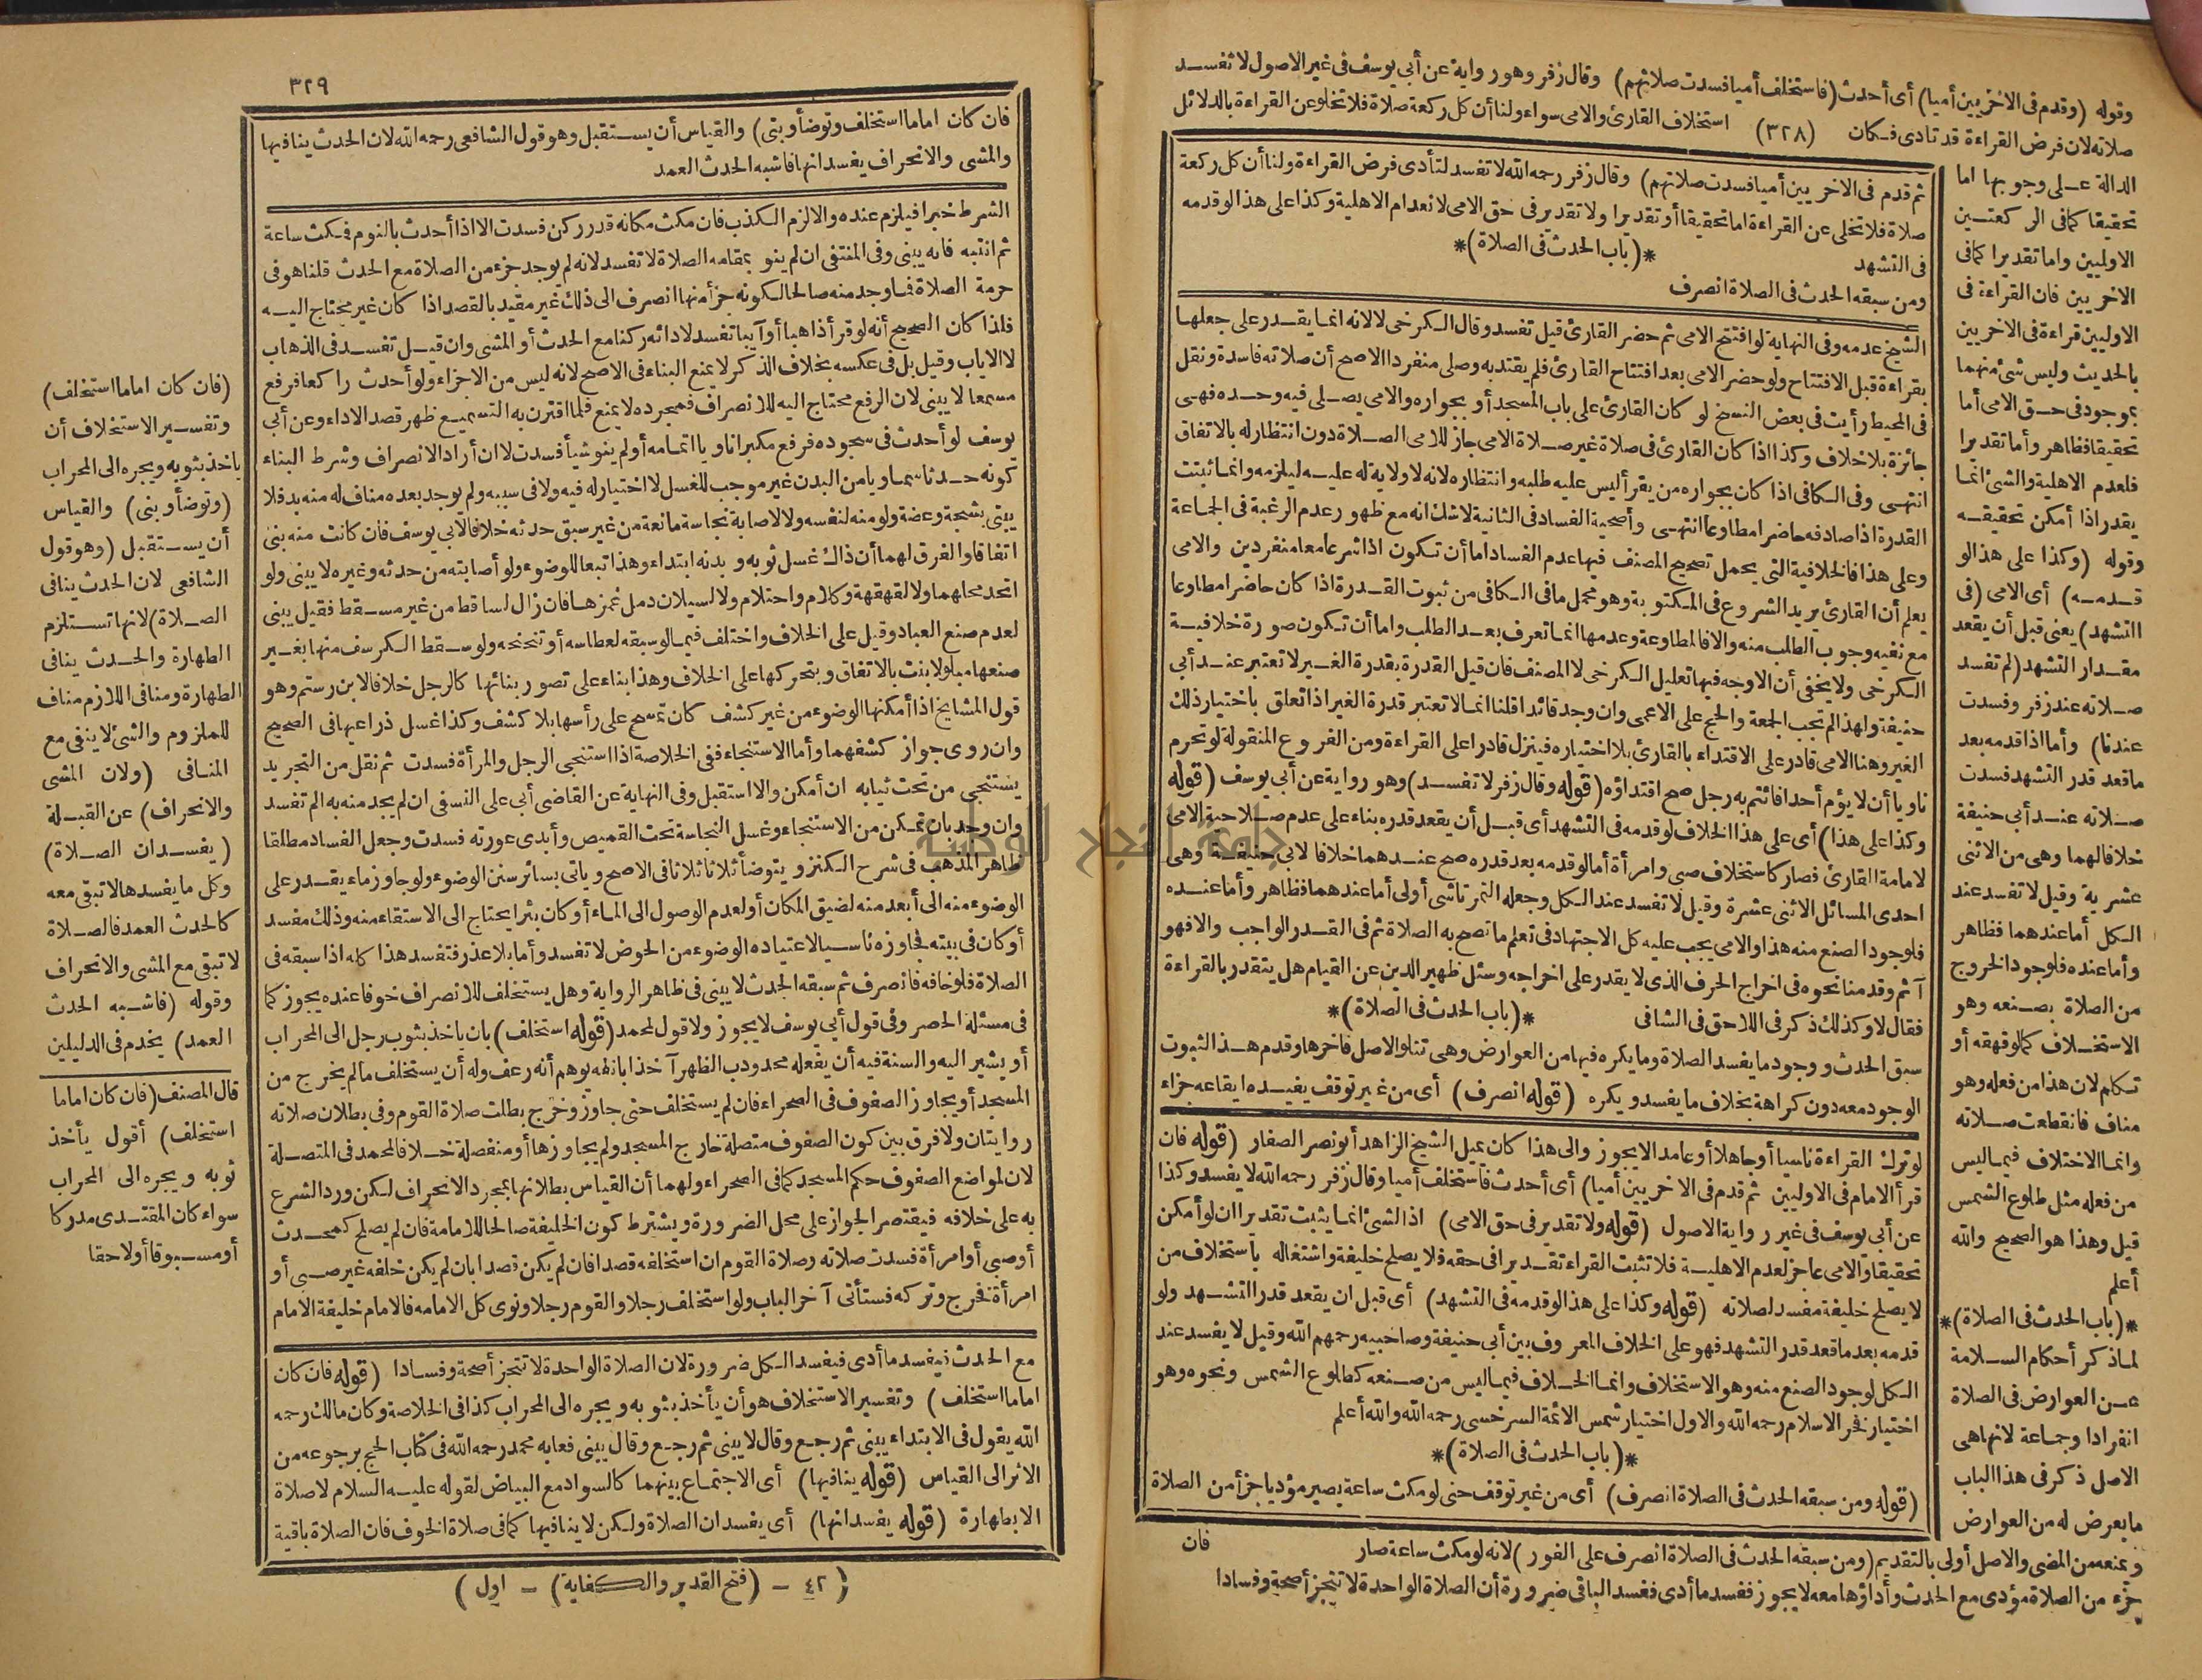 وقوله (وقدم في الاخريين أميا) أى أحدث (فاستخلف أميا فسدت صلاتهم) وقال زفر وهو رواية عن أبي يوسف في غير الاصول لا تفسد
صلاته لان فرض القراءة قد تادى فكان (٣٢٨) استخلاف القارئ والامى سواء ولنا أن كل ركعة صلاة فلا تخلو عن القراءة بالدلائل
الدالة على وجوبها اما
تحقيقا كما في الركعتين
الاوليين واما تقديرا كما في
الاخريين فان القراءة في
الاوليين قراءة في الاخريين
بالحديث وليس شئ منهما
بموجود في حق الامى أما
تحقيقا فظاهر وأما تقديرا
فلعدم الاهلية والشئ انما
يقدر اذا أمكن تحقيقه
وقوله (وكذا على هذا لو
قدمه) أى الامى (في
التشهد) يعنى قبل أن يقعد
مقدار التشهد (لم تفسد
صلاته عند زفر وفسدت
عندنا) وأما اذا قدمه بعد
ما قعد قدر التشهد فسدت
صلاته عند أبى حنيفة
خلافا لهما وهى من الاثنى
عشرية وقيل لا تفسد عند
الكل أما عندهما فظاهر
وأما عنده فلوجود الخروج
من الصلاة بصنعه وهو
الاستخلاف كما لو قهقه أو
تكلم لان هذا من فعله وهو
مناف فانقطعت صلاته
وانما الاختلاف فيما ليس
من فعله مثل طلوع الشمس
قيل وهذا هو الصحيح والله
أعلم
*(باب الحدث في الصلاة)*
لما ذكر أحكام السلامة
عن العوارض في الصلاة
انفرادا وجماعة لانها هى
الاصل ذكر في هذا الباب
ما يعرض له من العوارض
وتمنعه من المضى والاصل أولى بالتقديم (ومن سبقه الحدث في الصلاة انصرف على الفور) لانه لو مكث ساعة صار
جزء من الصلاة مؤدى مع الحدث وأداؤها معه لا يجوز ففسد ما أدى ففسد الباقى ضرورة أن الصلاة الواحدة لا تتجزأ صحة وفسادا
فان
ثم قدم في الاخريين أميا فسدت صلاتهم) وقال زفر رحمه الله لا تفسد لتأدى فرض القراءة ولنا أن كل ركعة
صلاة فلا تخلى عن القراءة اما تحقيقا أو تقديرا ولا تقدير في حق الامى لانعدام الاهلية وكذا على هذا لو قدمه
في التشهد
*(باب الحدث في الصلاة)*
ومن سبقه الحدث في الصلاة انصرف
الشيخ عدمه وفى النهاية لو افتتح الامى ثم حضر القارئ قيل تفسد وقال الكرخى لا لانه انما يقدر على جعلها
بقراءة قبل الافتتاح ولو حضر الامى بعد افتتاح القارئ فلم يقتد به وصلى منفردا الاصح أن صلاته فاسدة ونقل
في المحيط رأيت في بعض النسخ لو كان القارئ على باب المسجد أو بجواره والامى يصلى فيه وحده فهى
جائزة بلا خلاف وكذا اذا كان القارئ في صلاة غير صلاة الامى جاز للامى الصلاة دون انتظار له بالاتفاق
انتهى وفى الكافى اذا كان بجواره من يقرأ ليس عليه طلبه وانتظاره لانه لا ولاية له عليه ليلزمه وانما ثبتت
القدرة اذا صادفه حاضرا مطاوعا انتهى وأصحية الفساد في الثانية لا شك انه مع ظهور عدم الرغبة في الجماعة
وعلى هذا فالخلافية التى يحمل تصحيح المصنف فيها عدم الفساد اما أن تكون اذا شرعا معا منفردين والامى
يعلم أن القارئ يريد الشروع في المكتوبة وهو محمل ما فى الكافى من ثبوت القدرة اذا كان حاضرا مطاوعا
مع نفيه وجوب الطلب منه والا فالمطاوعة وعدمها انما تعرف بعد الطلب واما أن تكون صورة خلافية
الكرخى ولا يخفى أن الاوجه فيها تعليل الكرخى لا المصنف فان قيل القدرة بقدرة الغير لا تعتبر عند أبى
حنيفة ولهذا لم يجب الجمعة والحج على الاعمى وان وجد قائدا قلنا انما لا تعتبر قدرة الغير اذا تعلق باختيار ذلك
الغير وهنا الامى قادر على الاقتداء بالقارئ بلا اختياره فينزل قادرا على القراءة ومن الفروع المنقولة لو تحرم
ناويا أن لا يؤم أحدا فائتم به رجل صح اقتداؤه (قوله وقال زفر لا تفسد) وهو رواية عن أبى يوسف (قوله
وكذا على هذا) أى على هذا الخلاف لو قدمه في التشهد أى قبل أن يقعد قدره بناء على عدم صلاحية الامى
لامامة القارئ فصار كاستخلاف صبى وامرأة أما لو قدمه بعد قدره صح عندهما خلافا لابى حنيفة وهى
احدى المسائل الاثنى عشرة وقيل لا تفسد عند الكل وجعله التمرتاشى أولى أما عندهما فظاهر وأما عنده
فلوجود الصنع منه هذا والامى يجب عليه كل الاجتهاد في تعلم ما تصح به الصلاة ثم في القدر الواجب والا فهو
آثم وقدمنا نحوه في اخراج الحرف الذى لا يقدر على اخراجه وسئل ظهير الدين عن القيام هل يتقدر بالقراءة
فقال لا وكذلك ذكر في اللاحق في الشافى
*(باب الحدث في الصلاة)*
سبق الحدث ووجود ما يفسد الصلاة وما يكره فيها من العوارض وهى تتلو الاصل فاخرها وقدم هذا لثبوت
الوجود معه دون كراهة بخلاف ما يفسد ويكره (قوله انصرف) أى من غير توقف يفيده ايقاعه جزاء
لو ترك القراءة ناسيا أو جاهلا أو عامدا لا يجوز والى هذا كان يميل الشيخ الزاهد أبو نصر الصفار (قوله فان
قرأ الامام في الاوليين ثم قدم في الاخريين أميا) أى أحدث فاستخلف أميا وقال زفر رحمه الله لا يفسد وكذا
عن أبى يوسف في غير رواية الاصول (قوله ولا تقدير في حق الامى) اذ الشئ انما يثبت تقديرا ان لو أمكن
تحقيقا والامى عاجز لعدم الاهلية فلا تثبت القراءة تقديرا في حقه فلا يصلح خليفة واشتغاله باستخلاف من
لا يصلح خليفة مفسد لصلاته (قوله وكذا على هذا لو قدمه في التشهد) أى قبل ان يقعد قدر التشهد ولو
قدمه بعد ما قعد قدر التشهد فهو على الخلاف المعروف بين أبى حنيفة وصاحبيه رحمهم الله وقيل لا يفسد عند
الكل لوجود الصنع منه وهو الاستخلاف وانما الخلاف فيما ليس من صنعه كطلوع الشمس ونحوه وهو
اختيار فخر الاسلام رحمه الله والاول اختيار شمس الائمة السرخسى رحمه الله والله أعلم
*(باب الحدث في الصلاة)*
(قوله ومن سبقه الحدث في الصلاة انصرف) أى من غير توقف حتى لو مكث ساعة يصير مؤديا جزأ من الصلاة
٣٢٩
فان كان اماما استخلف وتوضأ وبنى) والقياس أن يستقبل وهو قول الشافعى رحمه الله لان الحدث ينافيها
والمشى والانحراف يفسدانها فاشبه الحدث العمد
الشرط خبرا فيلزم عنده والا لزم الكذب فان مكث مكانه قدر ركن فسدت الا اذا أحدث بالنوم فمكث ساعة
ثم انتبه فانه يبنى وفى المنتقى ان لم ينو بمقامه الصلاة لا تفسد لانه لم يوجد جزء من الصلاة مع الحدث قلنا هو فى
حرمة الصلاة فما وجد منه صالحا لكونه جزأ منها انصرف الى ذلك غير مقيد بالقصد اذا كان غير محتاج اليه
فلذا كان الصحيح أنه لو قرأ ذاهبا أو آيبا تفسد لادائه ركنا مع الحدث أو المشى وان قيل تفسد في الذهاب
لا الاياب وقيل بل في عكسه بخلاف الذكر لا يمنع البناء في الاصح لانه ليس من الاجزاء ولو أحدث راكعا فرفع
مسمعا لا يبنى لان الرفع محتاج اليه للانصراف فمجرده لا يمنع فلما اقترن به التسميع ظهر قصد الاداء وعن أبى
يوسف لو أحدث في سجوده فرفع مكبرا ناويا اتمامه أو لم ينو شيأ فسدت لا ان أراد الانصراف وشرط البناء
كونه حدثا سماويا من البدن غير موجب للغسل لا اختيار له فيه ولا في سببه ولم يوجد بعده مناف له منه بد فلا
يبنى بشجة وعضة ولو منه لنفسه ولا لاصابة نجاسة مانعة من غير سبق حدثه خلافا لابى يوسف فان كانت منه بنى
اتفاقا والفرق لهما أن ذاك غسل ثوبه وبدنه ابتداء وهذا تبعا للوضوء ولو أصابته من حدثه وغيره لا يبنى ولو
اتحد محلهما ولا لقهقهة وكلام واحتلام ولا لسيلان دمل غمزها فان زال لساقط من غير مسقط فقيل يبنى
لعدم صنع العباد وقيل على الخلاف واختلف فيما لو سبقه لعطاسه أو تنحنحه ولو سقط الكرسف منها بغير
صنعها مبلولا بنت بالاتفاق وبتحريكها على الخلاف وهذا بناء على تصور بنائها كالرجل خلافا لابن رستم وهو
قول المشايخ اذا أمكنها الوضوء من غير كشف كان تمسح على رأسها بلا كشف وكذا غسل ذراعيها في الصحيح
وان روى جواز كشفهما وأما الاستنجاء ففى الخلاصة اذا استنجى الرجل والمرأة فسدت ثم نقل من التجريد
يستنجى من تحت ثيابه ان أمكن والا استقبل وفى النهاية عن القاضى أبى على النسفى ان لم يجد منه بدا لم تفسد
وان وجد بان تمكن من الاستنجاء وغسل النجاسة تحت القميص وأبدى عورته فسدت وجعل الفساد مطلقا
ظاهر المذهب في شرح الكنز ويتوضأ ثلاثا ثلاثا في الاصح وياتى بسائر سنن الوضوء ولو جاوز ماء يقدر على
الوضوء منه الى أبعد منه لضيق المكان أو لعدم الوصول الى الماء أو كان بئرا يحتاج الى الاستقاء منه وذلك مفسد
أو كان في بيته فجاوزه ناسيا لاعتياده الوضوء من الحوض لا تفسد وأما بلا عذر فتفسد هذا كله اذا سبقه فى
الصلاة فلو خافه فانصرف ثم سبقه الحدث لا يبنى في ظاهر الرواية وهل يستخلف للانصراف خوفا عنده يجوز كما
في مسئلة الحصر وفى قول أبى يوسف لا يجوز ولا قول لمحمد (قوله استخلف) بان ياخذ بثوب رجل الى المحراب
أو يشير اليه والسنة فيه أن يفعله محدودب الظهر آخذا بانفه يوهم أنه رعف وله أن يستخلف ما لم يخرج من
المسجد أو يجاوز الصفوف في الصحراء فان لم يستخلف حتى جاوز وخرج بطلت صلاة القوم وفى بطلان صلاته
روايتان ولا فرق بين كون الصفوف متصلة خارج المسجد ولم يجاوزها أو منفصلة خلافا لمحمد في المتصلة
لان لمواضع الصفوف حكم المسجد كما في الصحراء ولهما أن القياس بطلانها بمجرد الانحراف لكن ورد الشرع
به على خلافه فيقتصر الجواز على محل الضرورة ويشترط كون الخليفة صالحا للامامة فان لم يصلح كمحدث
أو صبى أو امرأة فسدت صلاته وصلاة القوم ان استخلفه قصدا فان لم يكن قصدا بان لم يكن خلفه غير صبى أو
امرأة فخرج وتركه فستأتى آخر الباب ولو استخلف رجلا والقوم رجلا ونوى كل الامامه فالامام خليفة الامام
مع الحدث فيفسد ما أدى فيفسد الكل ضرورة لان الصلاة الواحدة لا تتجزأ صحة وفسادا (قوله فان كان
اماما استخلف) وتفسير الاستخلاف هو أن يأخذ بثوبه ويجره الى المحراب كذا في الخلاصة وكان مالك رحمه
الله يقول في الابتداء يبنى ثم رجع وقال لا يبنى ثم رجع وقال يبنى فعابه محمد رحمه الله في كتاب الحج برجوعه من
الاثر الى القياس (قوله ينافيها) أى الاجتماع بينهما كالسواد مع البياض لقوله عليه السلام لا صلاة
الا بطهارة (قوله يفسدانها) أى يفسدان الصلاة ولكن لا ينافيها كما في صلاة الخوف فان الصلاة باقية
(٤٢ – (فتح القدير والكفاية) – اول)
(فان كان اماما استخلف)
وتفسير الاستخلاف أن
ياخذ بثوبه ويجره الى المحراب
(وتوضأ وبنى) والقياس
أن يستقبل (وهو قول
الشافعى لان الحدث ينافى
الصلاة) لانها تستلزم
الطهارة والحدث ينافى
الطهارة ومنافى اللازم مناف
للملزوم والشئ لا يبقى مع
المنافى (ولان المشى
والانحراف) عن القبلة
(يفسدان الصلاة)
وكل ما يفسدها لا تبقى معه
كالحدث العمد فالصلاة
لا تبقى مع المشى والانحراف
وقوله (فاشبه الحدث
العمد) يخدم في الدليلين
قال المصنف (فان كان اماما
استخلف) أقول يأخذ
ثوبه ويجره الى المحراب
سواء كان المقتدى مدركا
أو مسبوقا أو لاحقا
جامعة النجاح الوطنية